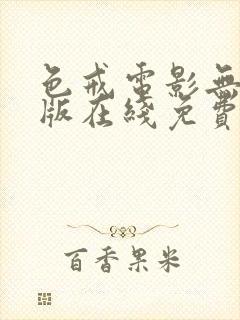 色戒電影無
版在綫免費
百香果米